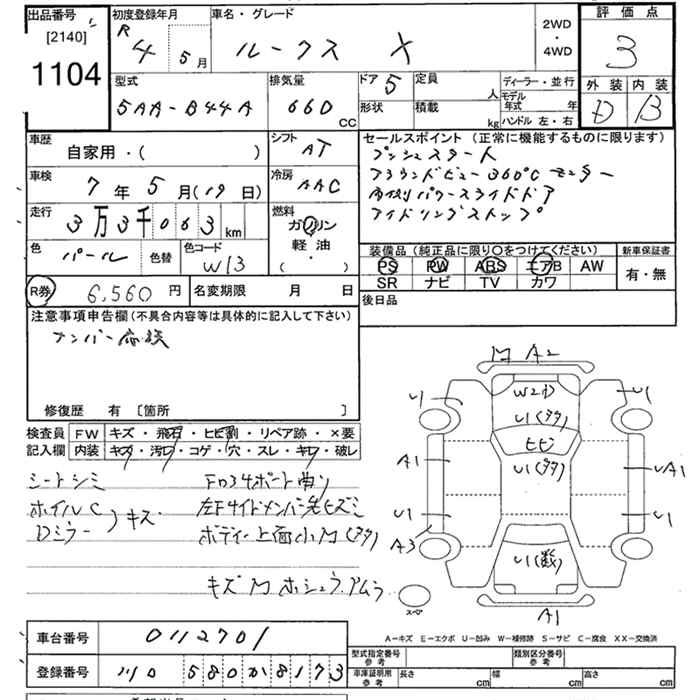 出品番号 初度登録年月 車名・グレード 2WD・4WD 評価点
[2140] R 4 5月 ルークス X 3
1104
型式 排気量 ドア 5 定員 人 ディーラー・並行 外装 内装
5AA-B44A 660 CC 形状 積載 kg モデル年式 年 D B
ハンドル 左・右
車歴 シフト AT セールスポイント (正常に機能するものに限ります)
自家用・( ) プッシュスタート
車検 7年5月(19日) 冷房 AAC アラウンドビュー360°Cモニター
両側パワースライドドア
走行 3万3千063km 燃料 ガソリン アイドリングストップ
軽油・( )
色 パール 色替 色コード W13 装備品 (純正品に限り○をつけてください) 新車保証書
PS PW ABS エアB AW 有・無
R券 6,560円 名変期限 月 日 SR ナビ TV カワ
注意事項申告欄(不具合内容等は具体的に記入して下さい) 後日品
ナンバー
修復歴 有 [箇所 ]
検査員 FW キズ・飛石・ヒビ割・リペア跡・×要
記入欄 内装 キズ・汚れ・コゲ・穴・スレ・キレ・破レ
シートシミ
ホイルC
Dミラー キズ
ボディー上面小M(タタ)
キズM
M A2
W2カ
U1 U1(タタ) U1
ヒビ
A1 U1(タタ) UA1
U1 U1
A3 U1(数)
スペア A1
A-キズ E-エクボ U-凹み W-補修跡 S-サビ C-腐食 XX-交換済
車台番号 0112701
型式指定番号 参考 類別区分番号 参考
登録番号 580か8173
車庫証明用 参考 長さ cm 幅 cm 高さ cm